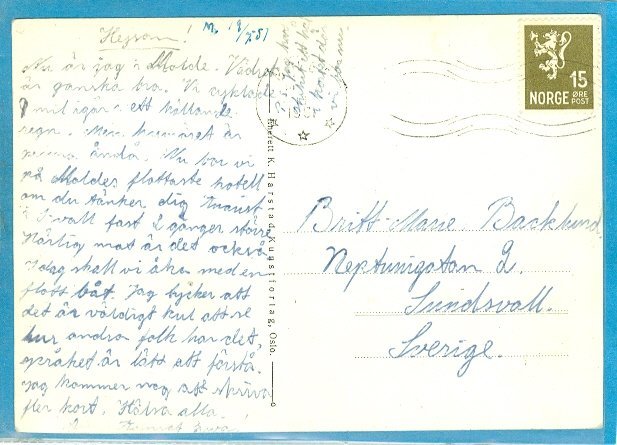 Hejsan!
Nu är jag i Molde. Vädret
är ganska bra. Vi cyklade
mil igår i ett hällande
regn. Men humöret är
ändå. Nu bor vi
på Moldes flottaste hotell
om du tänker dig
fast 2 gånger större
Härlig mat är det också
Idag skall vi åka med en
flott båt. Jag tycker att
det är väldigt kul att se
hur andra folk har det,
språket är lätt att förstå.
Jag kommer nog att skriva
fler kort. Hälsa alla.
P.S. Jag har
vi
Enerett K. Harstad Kunstforlag, Oslo.
15
NORGE ØRE
POST
Britt-Marie Backlund
Neptunigatan 2.
Sundsvall.
Sverige.